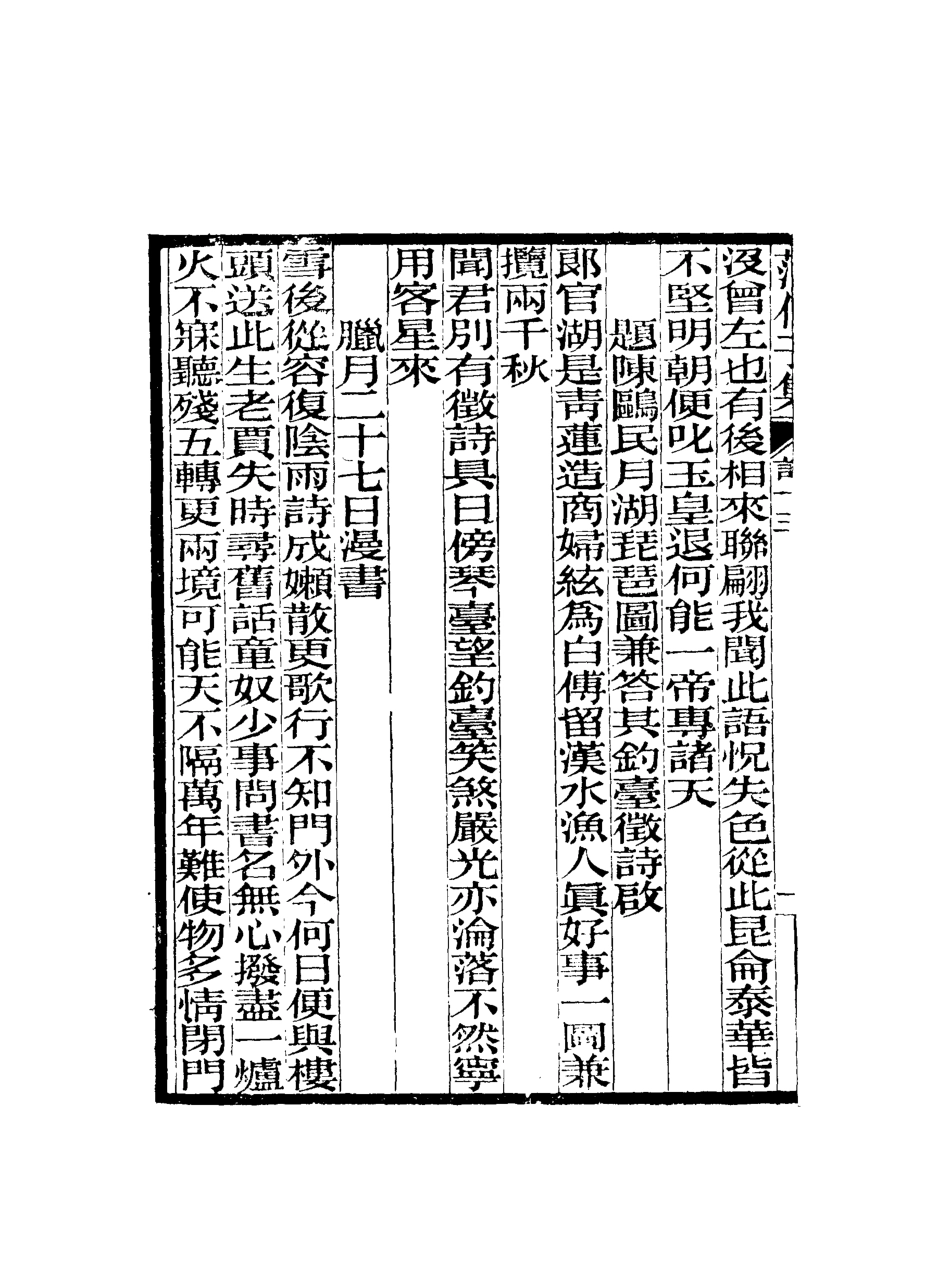 沒曾左也有後相來聯翩我聞此語怳失色從此昆侖泰華皆
不堅明朝便叱玉皇退何能一帝專諸天
題陳鷗民月湖琵琶圖兼答其釣臺徵詩啟
郞官湖是靑蓮造商婦絃爲白傅留漢水漁人眞好事一圖兼
攬兩千秋
聞君別有徵詩具日傍琴臺望釣臺笑煞嚴光亦淪落不然寧
用客星來
臘月二十七日漫書
雪後從容復陰雨詩成嬾散更歌行不知門外今何日便與樓
頭送此生老賈失時尋舊話童奴少事問書名無心撥盡一爐
火不寐聽殘五轉更兩境可能天不隔萬年難使物多情閉門